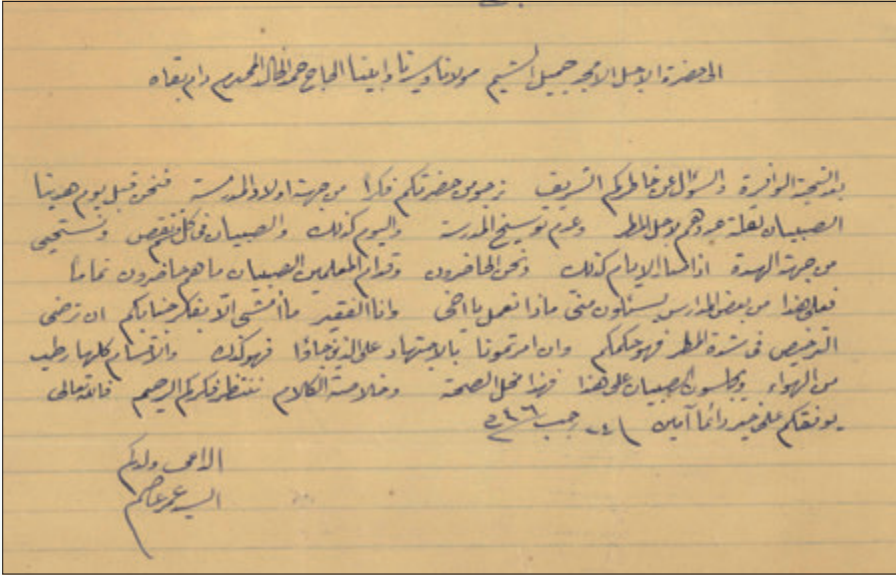 الى حضرة الاجل الامجد جميل الشيم مولانا وسيدنا وابينا الحاج حمد الخال المحترم دام بقاه
بعد التحية الوافرة والسؤال عن خاطركم الشريف نرجو من حضرتكم فكرًا من جهة اولاد المدرسة فنحن قبل يوم هدينا
الصبيان لقلة عددهم لاجل المطر وعدم توسيخ المدرسة واليوم كذلك والصبيان في كل نقص ونستحيي
من جهة الهدة اذا الايام كذلك ونحن الحاضرون وقدام المعلمين الصبيان ما هم حاضرون تمامًا
فعلى هذا من بعض المدارس يسئلون مني ماذا نعمل يا اخي وانا الفقير ما أمشي الا بفكر جنابكم ان ترضى
الترخيص في شدة المطر فهو حكمكم وان امرتمونا بالاجتهاد على الذي جاؤا فهو كذلك والاقسام كلها رطيب
من الهواء ويجلسون الصبيان على هذا فهذا مخل الصحة وخلاصة الكلام ننتظر فكركم الرحيم فالله تعالى
يوفقكم على خير دائمًا آمين رجب
الداعي ولدكم
السيد عمر عاصم